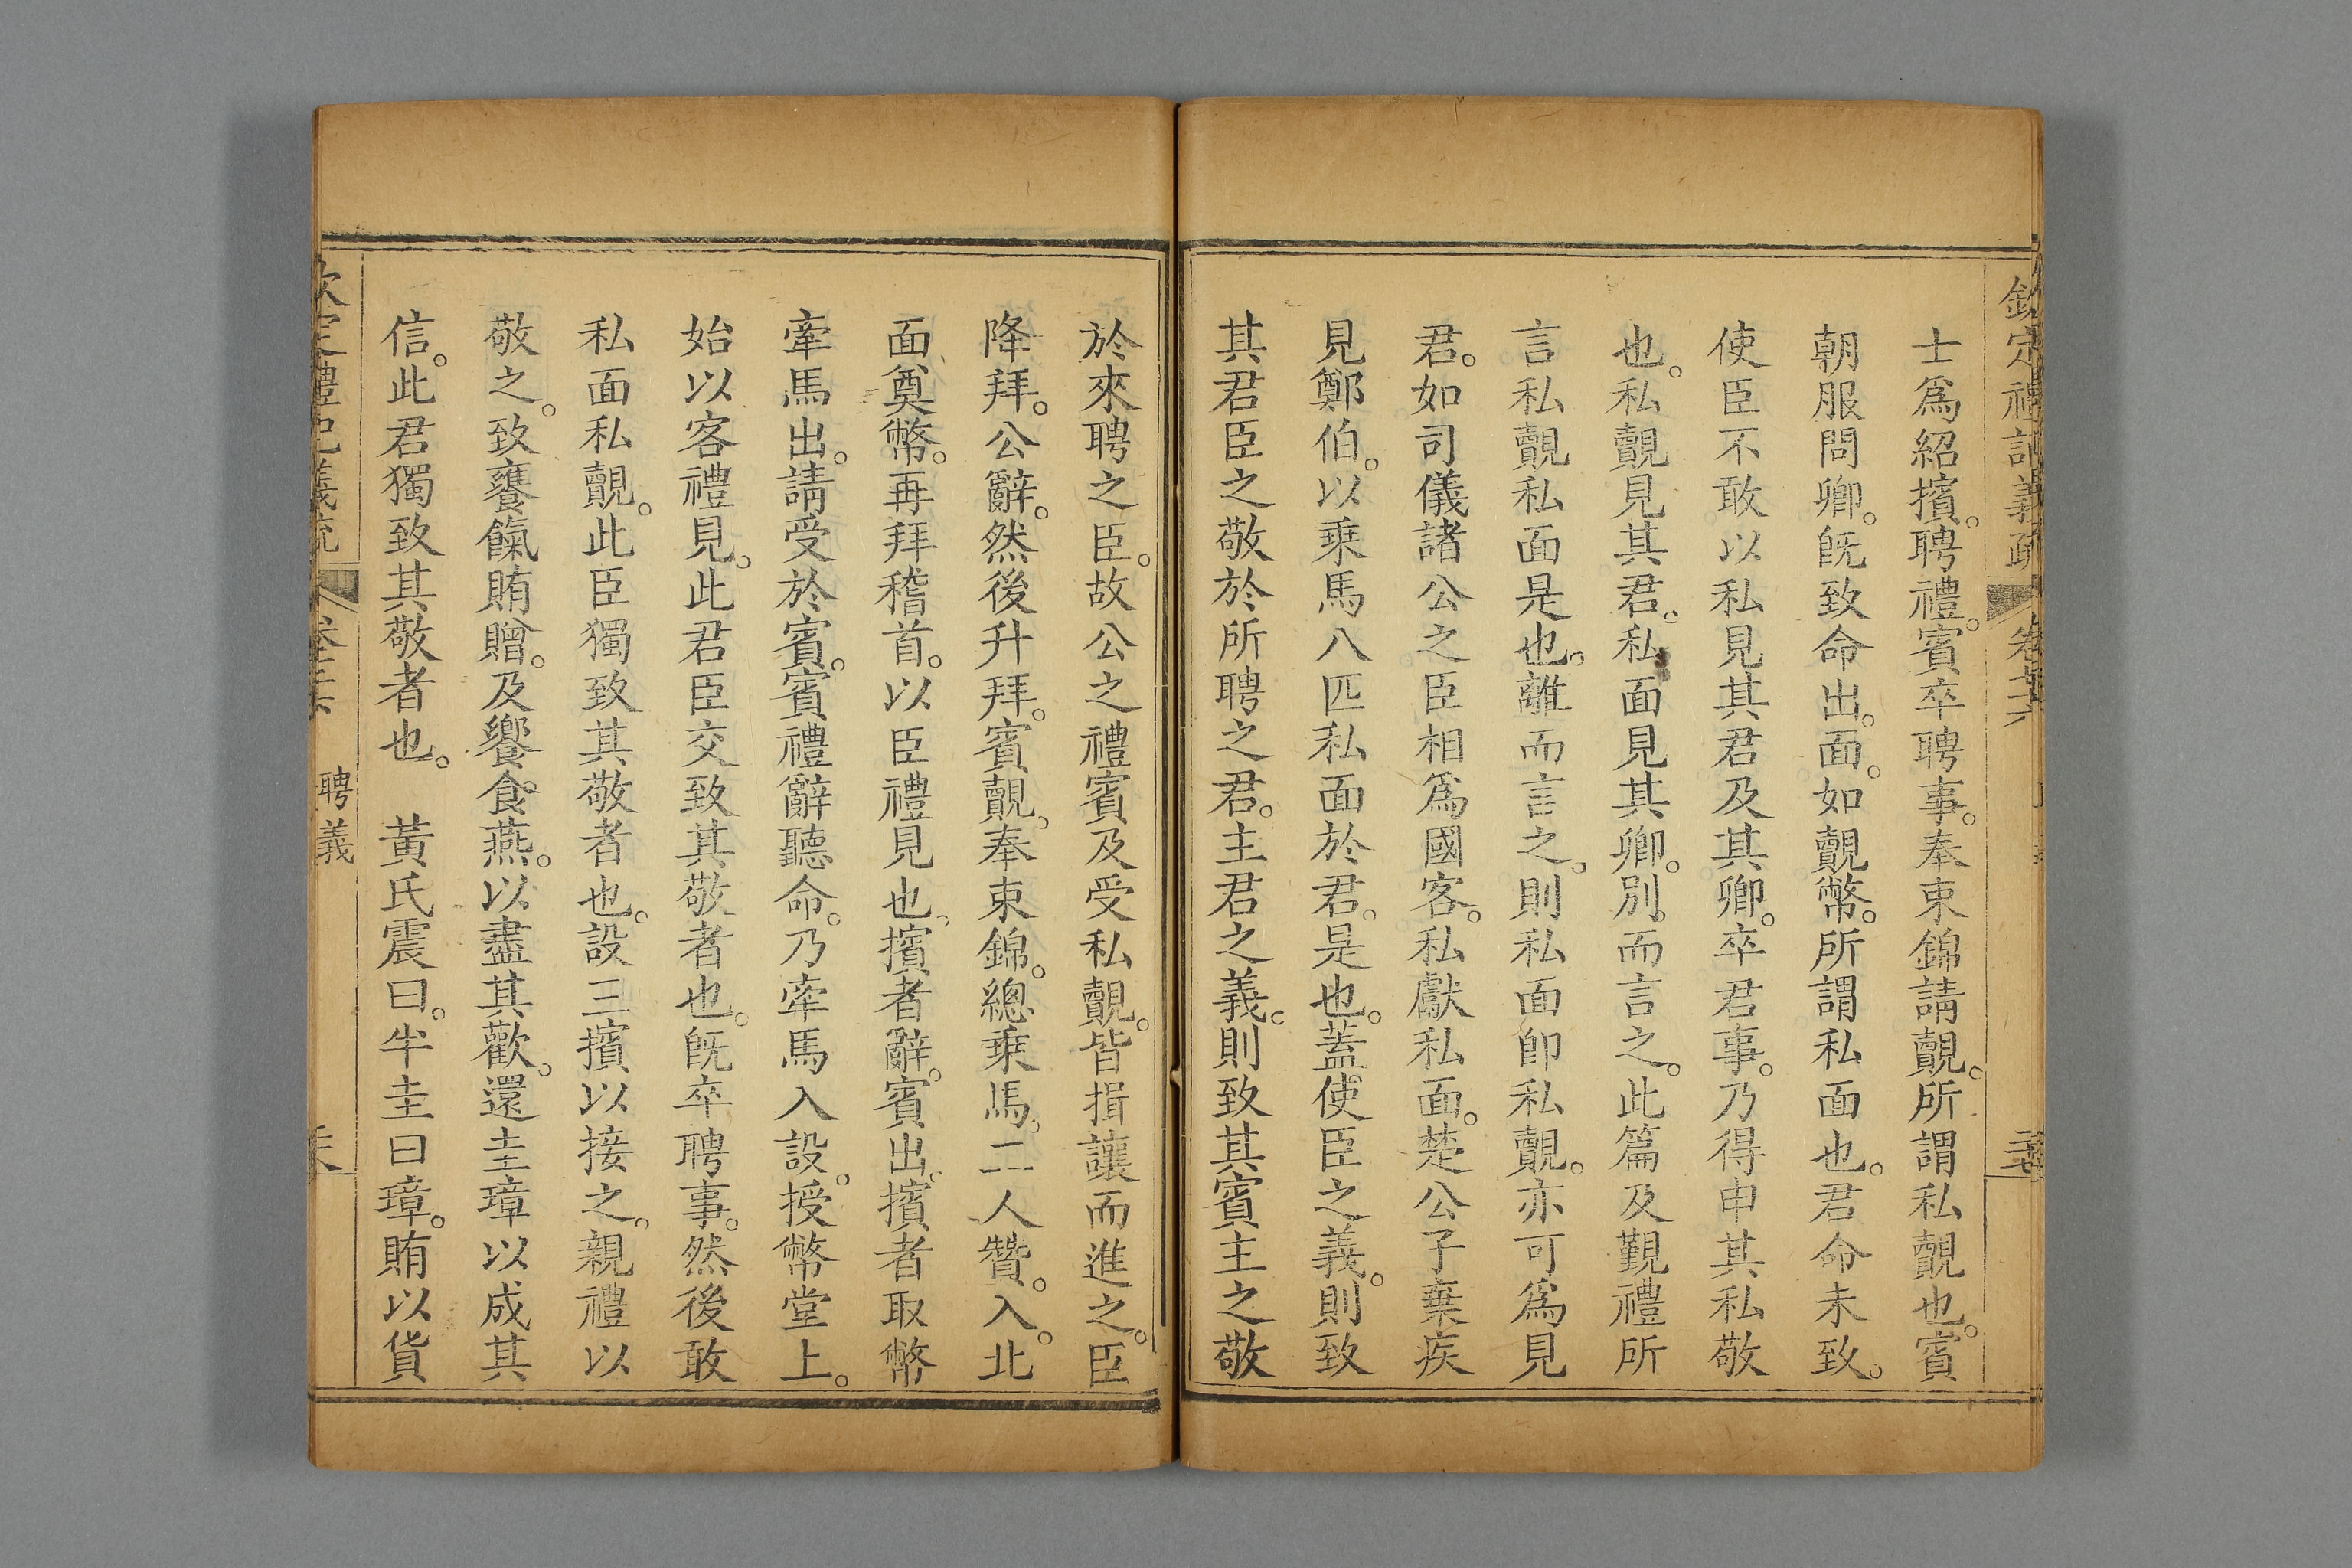 欽定禮記義疏 卷
士爲紹擯。聘禮。賓卒聘事。奉束錦請覿。所謂私覿也。賓
朝服問卿。旣致命出。面。如覿幣。所謂私面也。君命未致。
使臣不敢以私見其君及其卿。卒君事。乃得申其私敬
也。私覿見其君。私面見其卿。別而言之。此篇及覲禮所
言私覿私面是也。離而言之。則私面卽私覿。亦可爲見
君。如司儀諸公之臣相爲國客。私獻私面。楚公子棄疾
見鄭伯。以乗馬八匹私面於君。是也。蓋使臣之義。則致
其君臣之敬於所聘之君。主君之義。則致其賓主之敬
於來聘之臣。故公之禮賓及受私覿。皆揖讓而進之。臣
降拜。公辭。然後升拜。賓覿。奉束錦。總乗馬。二人贊。入。北
面奠幣。再拜稽首。以臣禮見也。擯者辭。賓出。擯者取幣
牽馬出。請受於賓。賓禮辭聽命。乃牽馬入設。授幣堂上。
始以客禮見。此君臣交致其敬者也。旣卒聘事。然後敢
私面私覿。此臣獨致其敬者也。設三擯以接之。親禮以
敬之。致饔餼賄贈。及饗食。燕。以盡其歡。還圭璋以成其
信。此君獨致其敬者也。　黃氏震曰。半圭曰璋。賄以貨
欽定禮記義疏 聘義